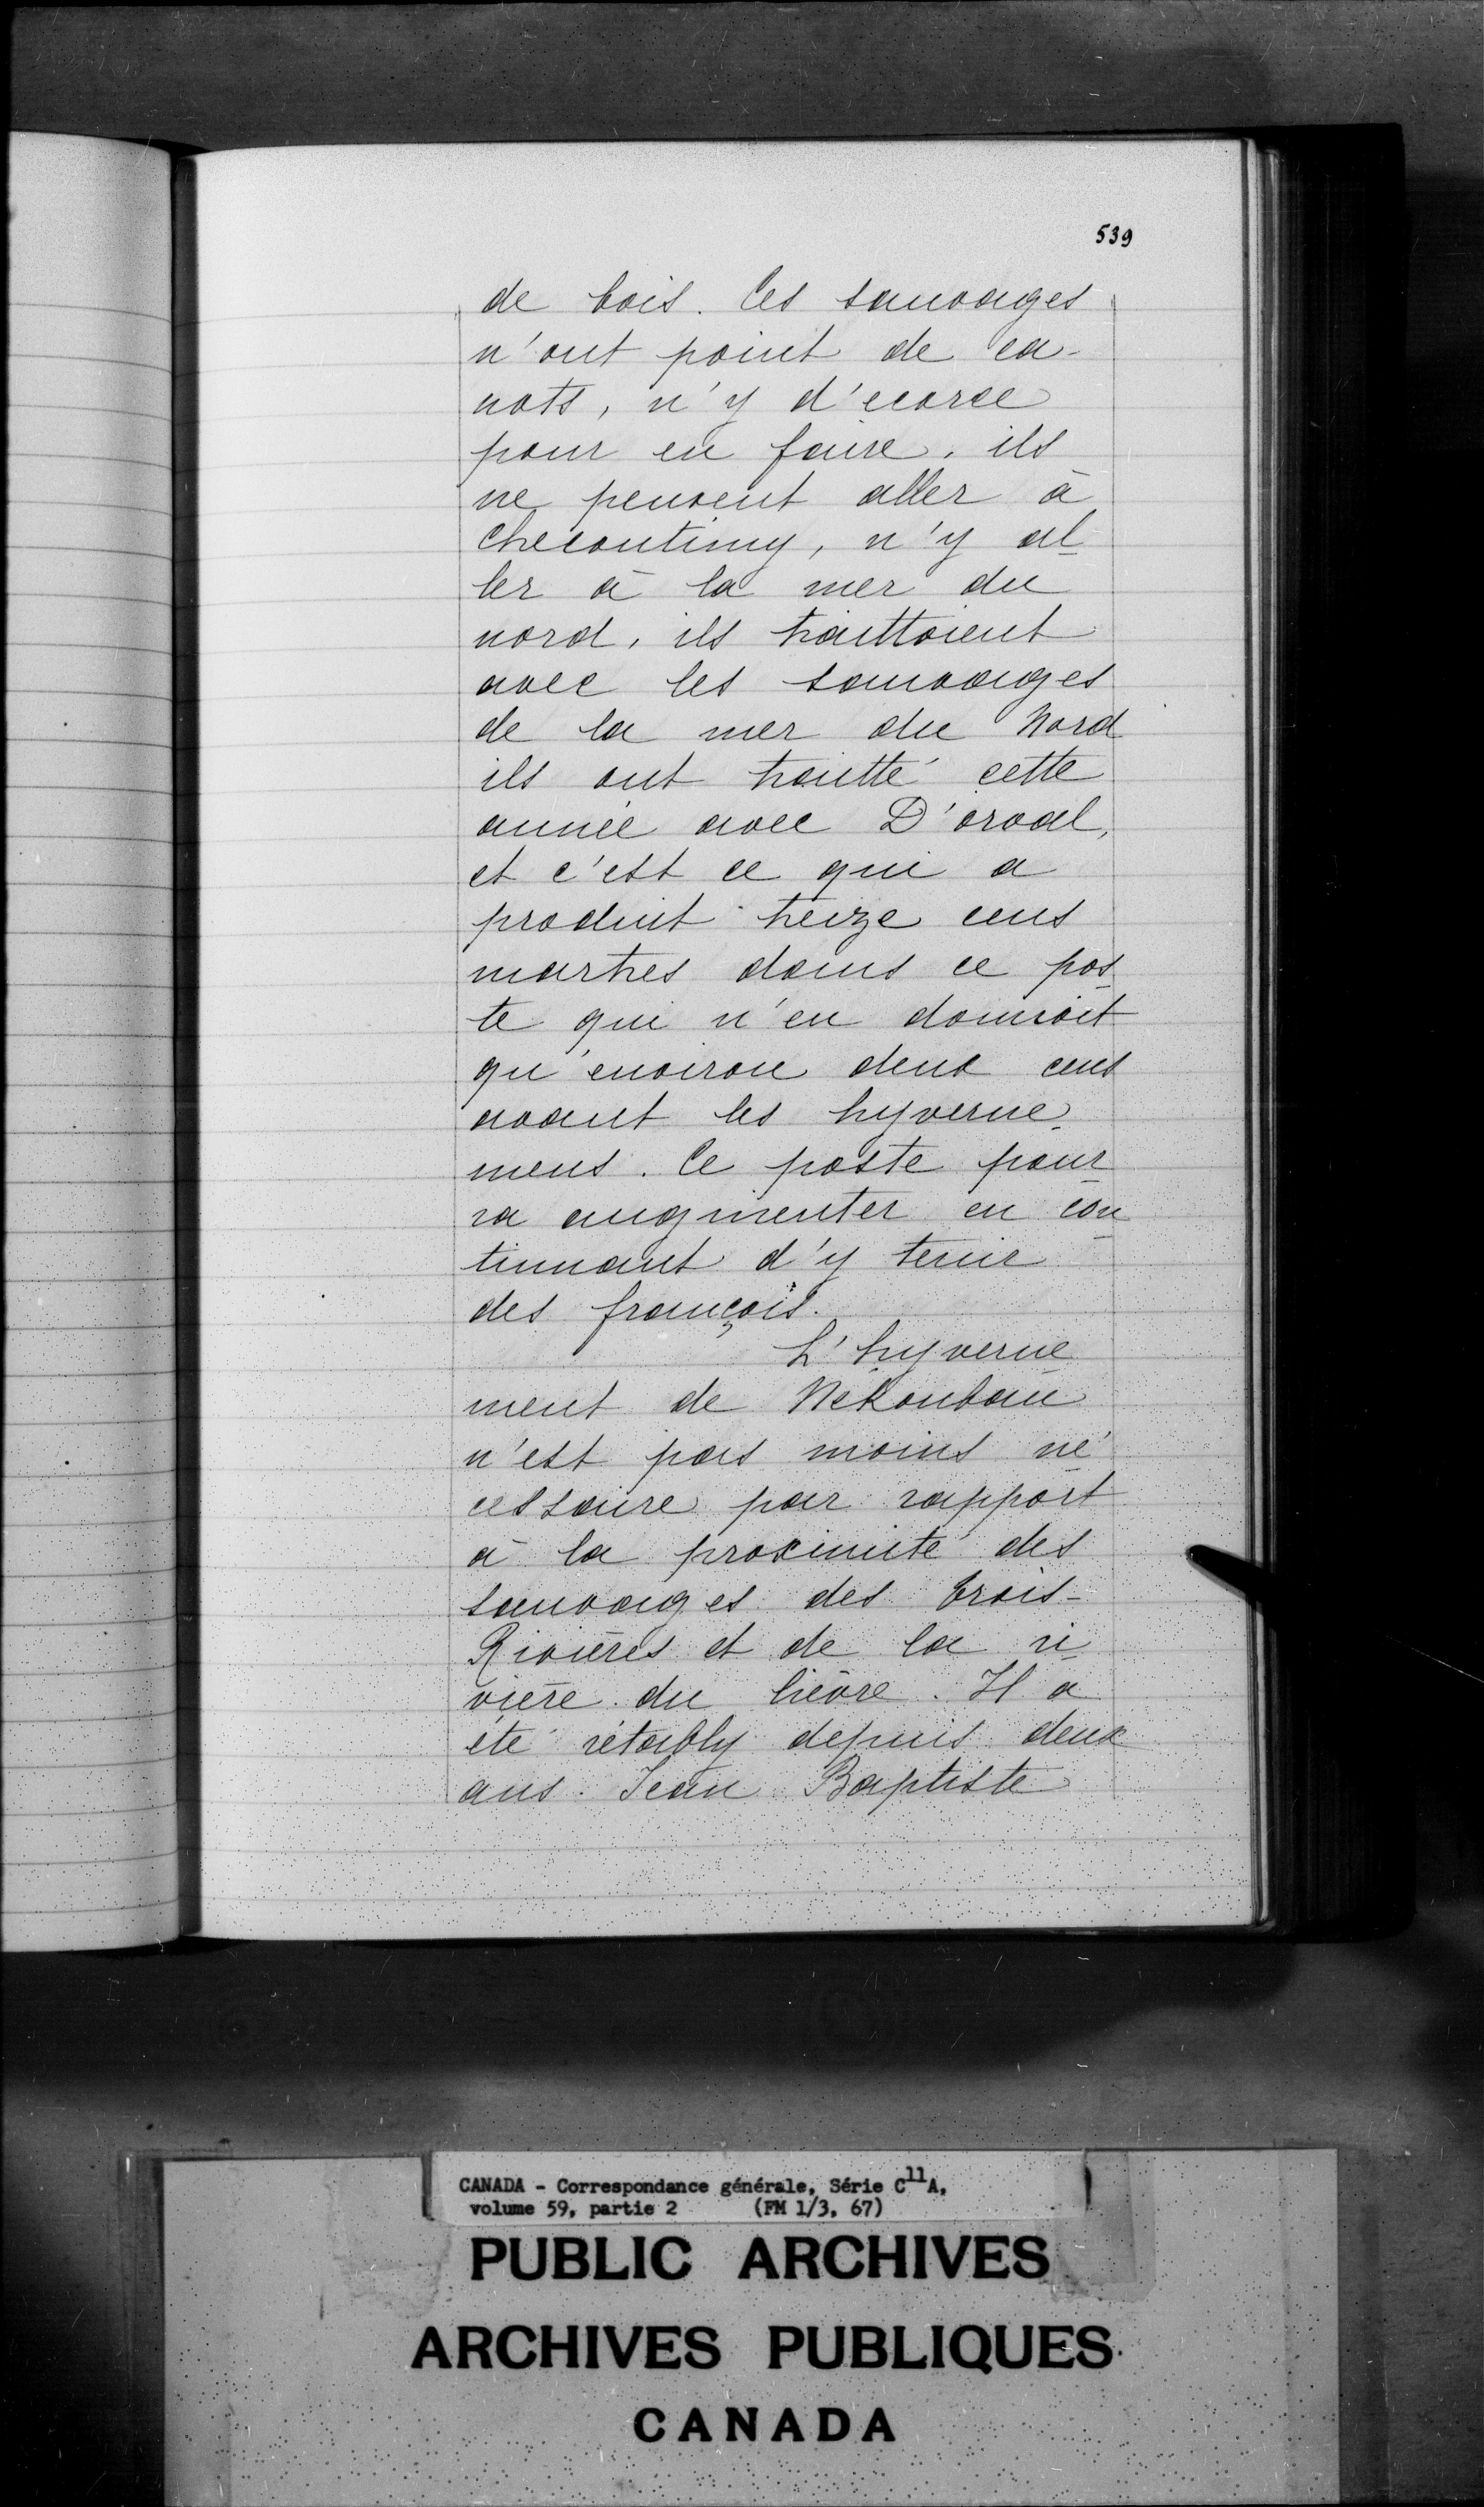 539
de bois. Ces sauvages
n'ont point de ca-
nots, n'y d'ecorce
pour en faire. ils
ne peuvent aller à
Checoutimy, n'y al
ler à la mer du
nord. ils traittoient
avec les sauvages
de la mer du Nord
ils ont traitté cette
année avec D'orval,
et c'est ce qui a
produit treize cens
martres dans ce pos
te qui n'en donnoit
qu'environ deux cens
avant les hyverne
mens. Ce poste pour
ra augmenter en con
tinuant d'y tenir
des françois.
L'hyverne
ment de Nekoubau
n'est pas moins né
cessaire par rapport
à la proximité des
sauvages des trois-
Rivières et de la ri
vière du lièvre. Il a
été rétably depuis deux
ans. Jean Baptiste
CANADA - Correspondance générale, Série C11A,
volume 59, partie 2 (FM 1/3, 67)
PUBLIC ARCHIVES
ARCHIVES PUBLIQUES
CANADA